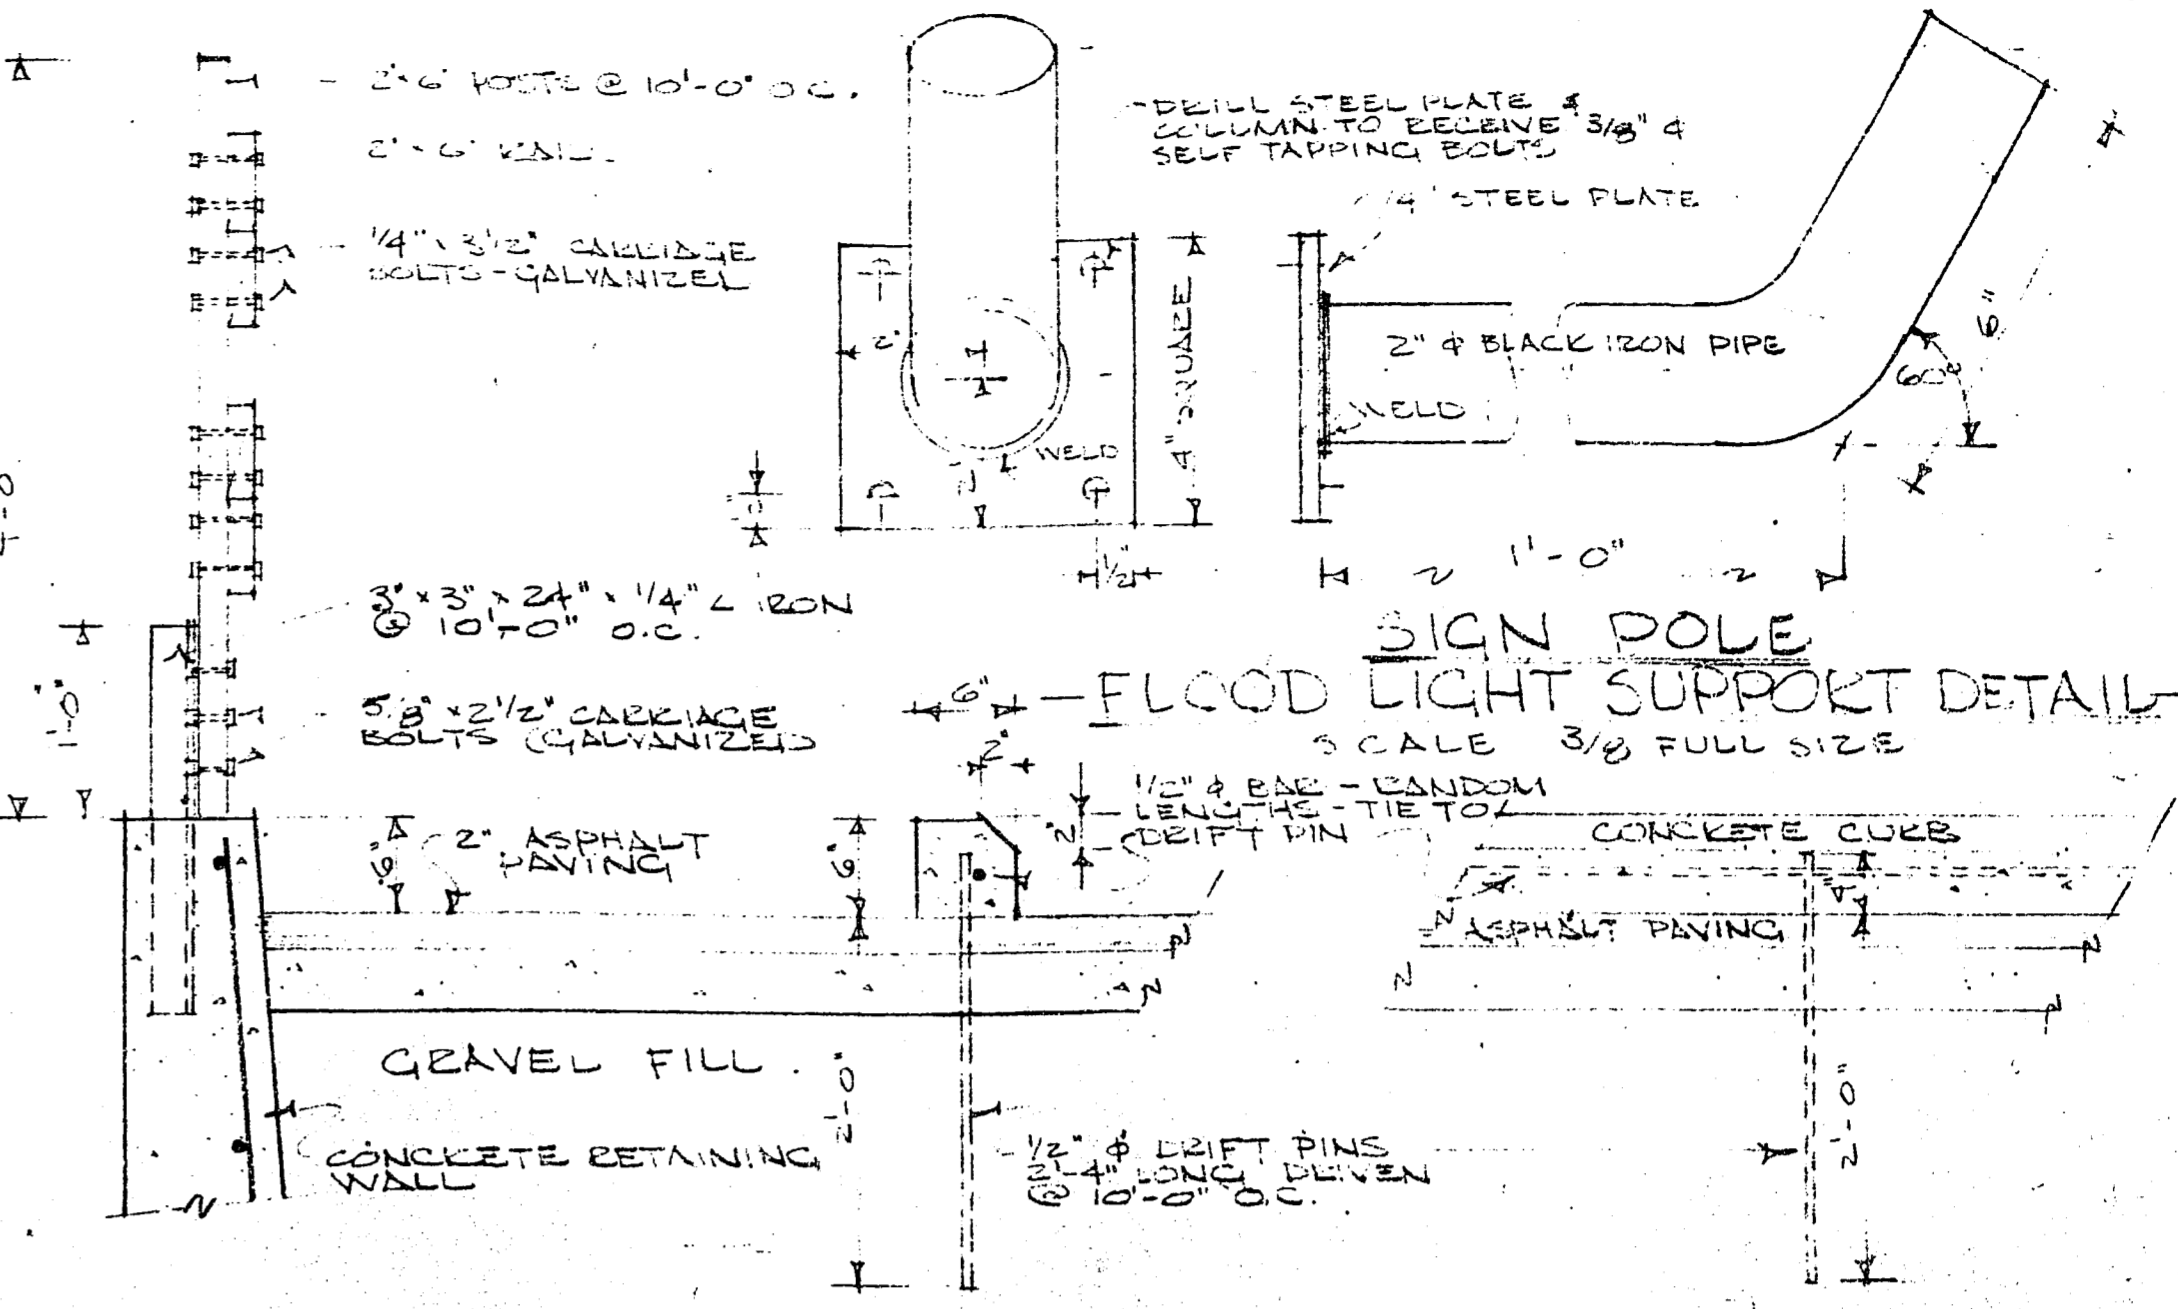 2"x6" POSTS @ 10'-0" O.C.
2"x6" RAIL
1/4" x 3 1/2" CARRIAGE
BOLTS - GALVANIZED
3" x 3" x 24" x 1/4" L IRON
@ 10'-0" O.C.
5/8" x 2 1/2" CARRIAGE
BOLTS (GALVANIZED)
1'-0"
6"
2" ASPHALT
PAVING
GRAVEL FILL
CONCRETE RETAINING
WALL
DRILL STEEL PLATE &
COLUMN TO RECEIVE 3/8" ϕ
SELF TAPPING BOLTS
1/4" STEEL PLATE
2" ϕ BLACK IRON PIPE
WELD
60°
6"
1'-0"
2"
2"
WELD
4" SQUARE
1/2"
1/2"
SIGN POLE
FLOOD LIGHT SUPPORT DETAIL
SCALE 3/8 FULL SIZE
6"
2"
2"
6"
1/2" ϕ BAR - RANDOM
LENGTHS - TIE TO
DRIFT PIN
CONCRETE CURB
4"
ASPHALT PAVING
2'-0"
1/2" ϕ DRIFT PINS
2'-4" LONG DRIVEN
@ 10'-0" O.C.
2'-0"